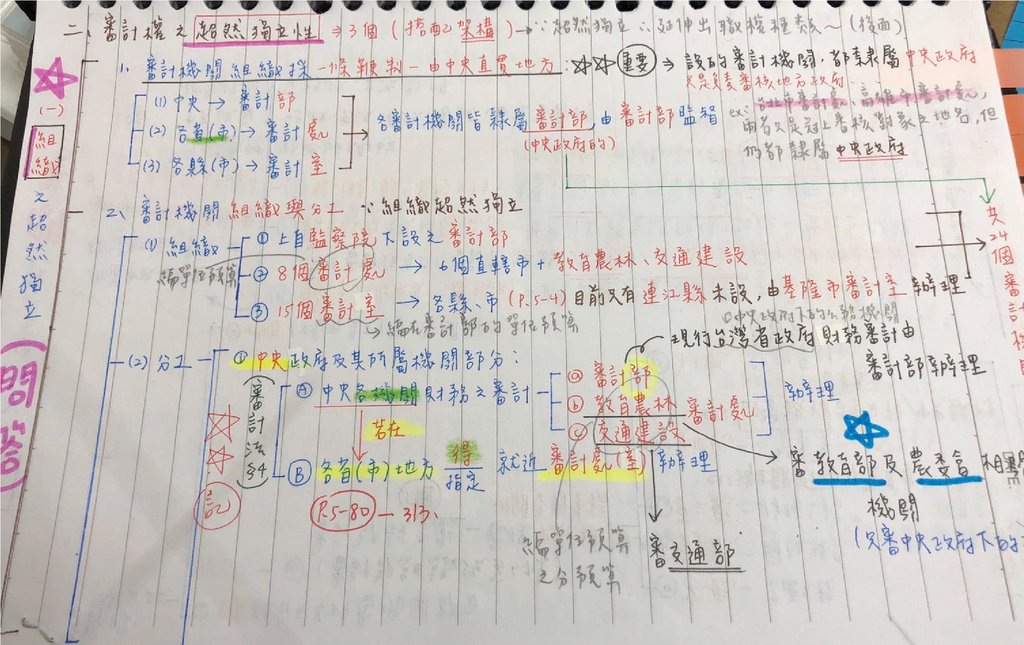 二、審計權之超然獨立性 ⇒ 3個(搭配架構) → ∵超然獨立 ∴延伸出職權種類~(後面)
1. 審計機關組織採一條鞭制—由中央直貫地方:☆☆重要 ⇒ 設的審計機關,都隸屬中央政府
只是負責審核地方政府.
(1) 中央 → 審計部
(2) 各省(市) → 審計處
(3) 各縣(市) → 審計室
各審計機關皆隸屬審計部,由審計部監督
(中央政府的)
ex: 台北市審計處、高雄市審計處,
兩者只是冠上審核對象之地名,但
仍都隸屬中央政府
(一)組織之超然獨立
(問答)
2、審計機關組織與分工 ∵組織超然獨立
(1) 組織
編單位預算
① 上自監察院下設之審計部
② 8個審計處 → 6個直轄市+教育農林、交通建設
③ 15個審計室 → 各縣、市 (P.5-4) 目前只有連江縣未設,由基隆市審計室辦理
→ 編在審計部的單位預算
共24個審計機
(2) 分工
① 中央政府及其所屬機關部分:
現行台灣省政府財務審計由
審計部辦理
審計法§4
☆☆記
Ⓐ 中央各機關財務之審計
ⓐ 審計部
ⓑ 教育農林審計處
ⓒ 交通建設
辦理
若在
Ⓑ 各省(市)地方 得指定 就近 審計處(室)辦理
(P.5-80) — 313、
編單位預算
之分預算
審交通部
審教育部及農委會相關
機關
(只審中央政府下的